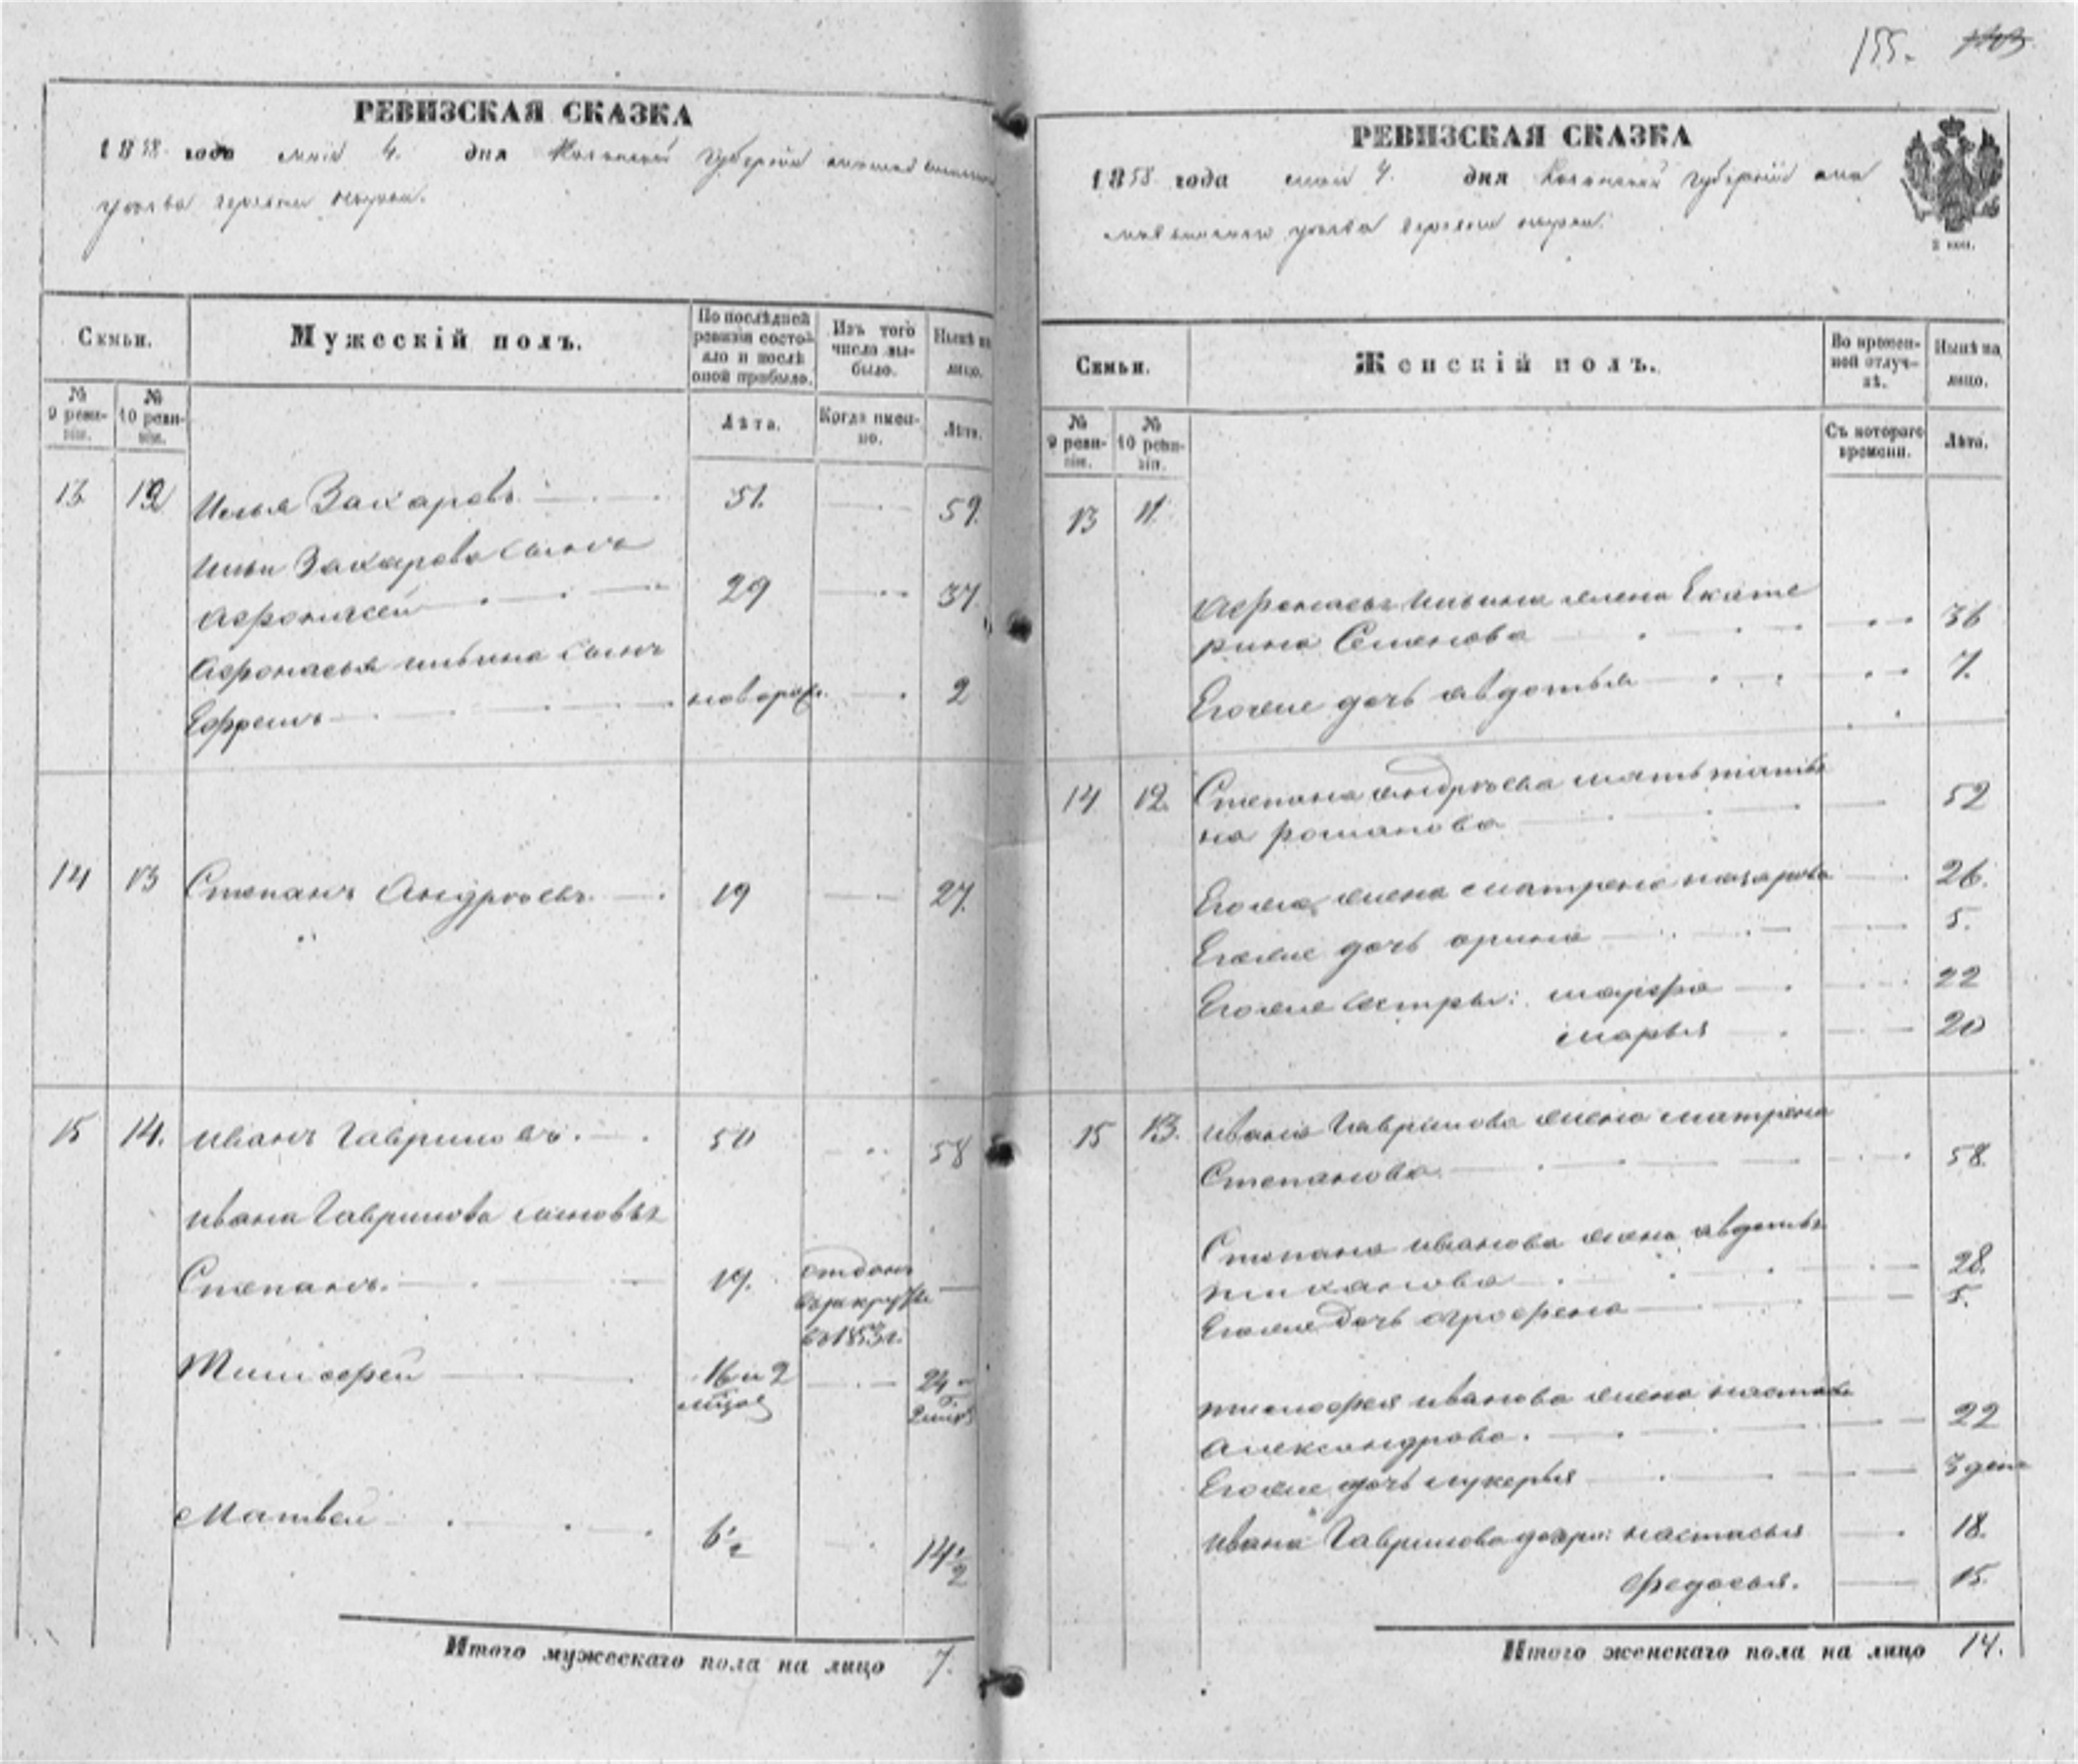 155. 103
РЕВИЗСКАЯ СКАЗКА
1858 года мая 4. дня Казанской губерніи
уезда деревни
Семьи.
Мужескій полъ.
По послѣдней ревизіи состояло и послѣ оной прибыло.
Изъ того числа выбыло.
Нынѣ на лицо.
№ 9 ревизіи.
№ 10 ревизіи.
Лѣта.
Когда именно.
Лѣта.
13. 12 Илья Захаровъ 51. 59.
Ильи Захарова сынъ
Афонасей 29 37.
Афонасья Ильина сынъ
Ефремъ новорож. 2
14 13 Степанъ Андреевъ 19 27.
15 14. Иванъ Гавриловъ. 50 58
Ивана Гаврилова сыновья
Степанъ. 19. отданъ
въ рекруты
въ 1853 г.
Тимофей 16 и 2 24 и
мѣсяц 2 мѣс
Матвей 6 1/2 14 1/2
Итого мужескаго пола на лицо 7.
РЕВИЗСКАЯ СКАЗКА
1858 года мая 4. дня Казанской губерніи спа
уезда деревни
2 коп.
Семьи.
Женскій полъ.
Во временной отлучкѣ.
Нынѣ на лицо.
№ 9 ревизіи.
№ 10 ревизіи.
Съ котораго времени.
Лѣта.
13 11.
Афонасья Ильина жена Екате
рина Семенова 36
Егоже дочь авдотья 7.
14 12. Степана андреева мать татья
на романова 52
Егоже жена матрена назарова 26.
Егоже дочь арина 5.
Егоже сестры: марфа 22
марья 20
15 13. Ивана Гаврилова жена матрена
Степанова. 58.
Степана иванова жена авдотья
тиханова 28.
Егоже дочь аграфена 5.
тимофея иванова жена настасья
александрова. 22
Егоже дочь лукерья 3 дня
Ивана Гаврилова дочери: настасья 18.
федосья. 15.
Итого женскаго пола на лицо 14.